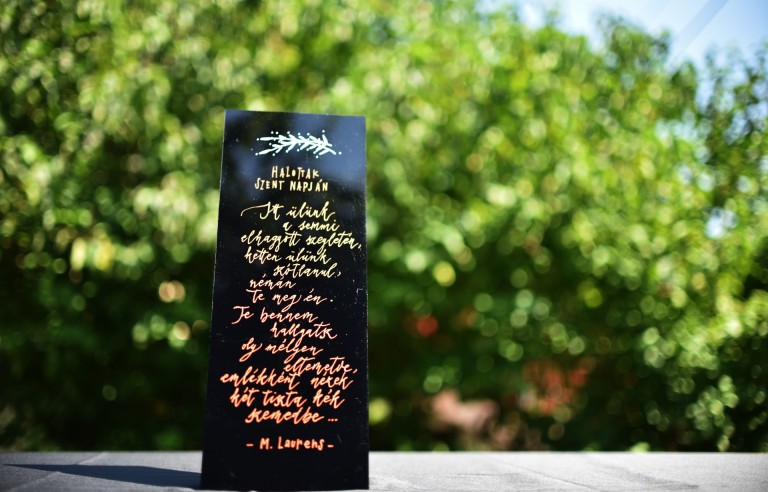 HALOTTAK
SZENT NAPJÁN
Itt ülünk
a semmi
elhagyott szegletén,
ketten ülünk
szótlanul,
némán
te meg én.
Te bennem
hallgatsz
oly mélyen
eltemetve,
emlékként nézek
két tiszta kék
szemedbe...
- M. Laurens -